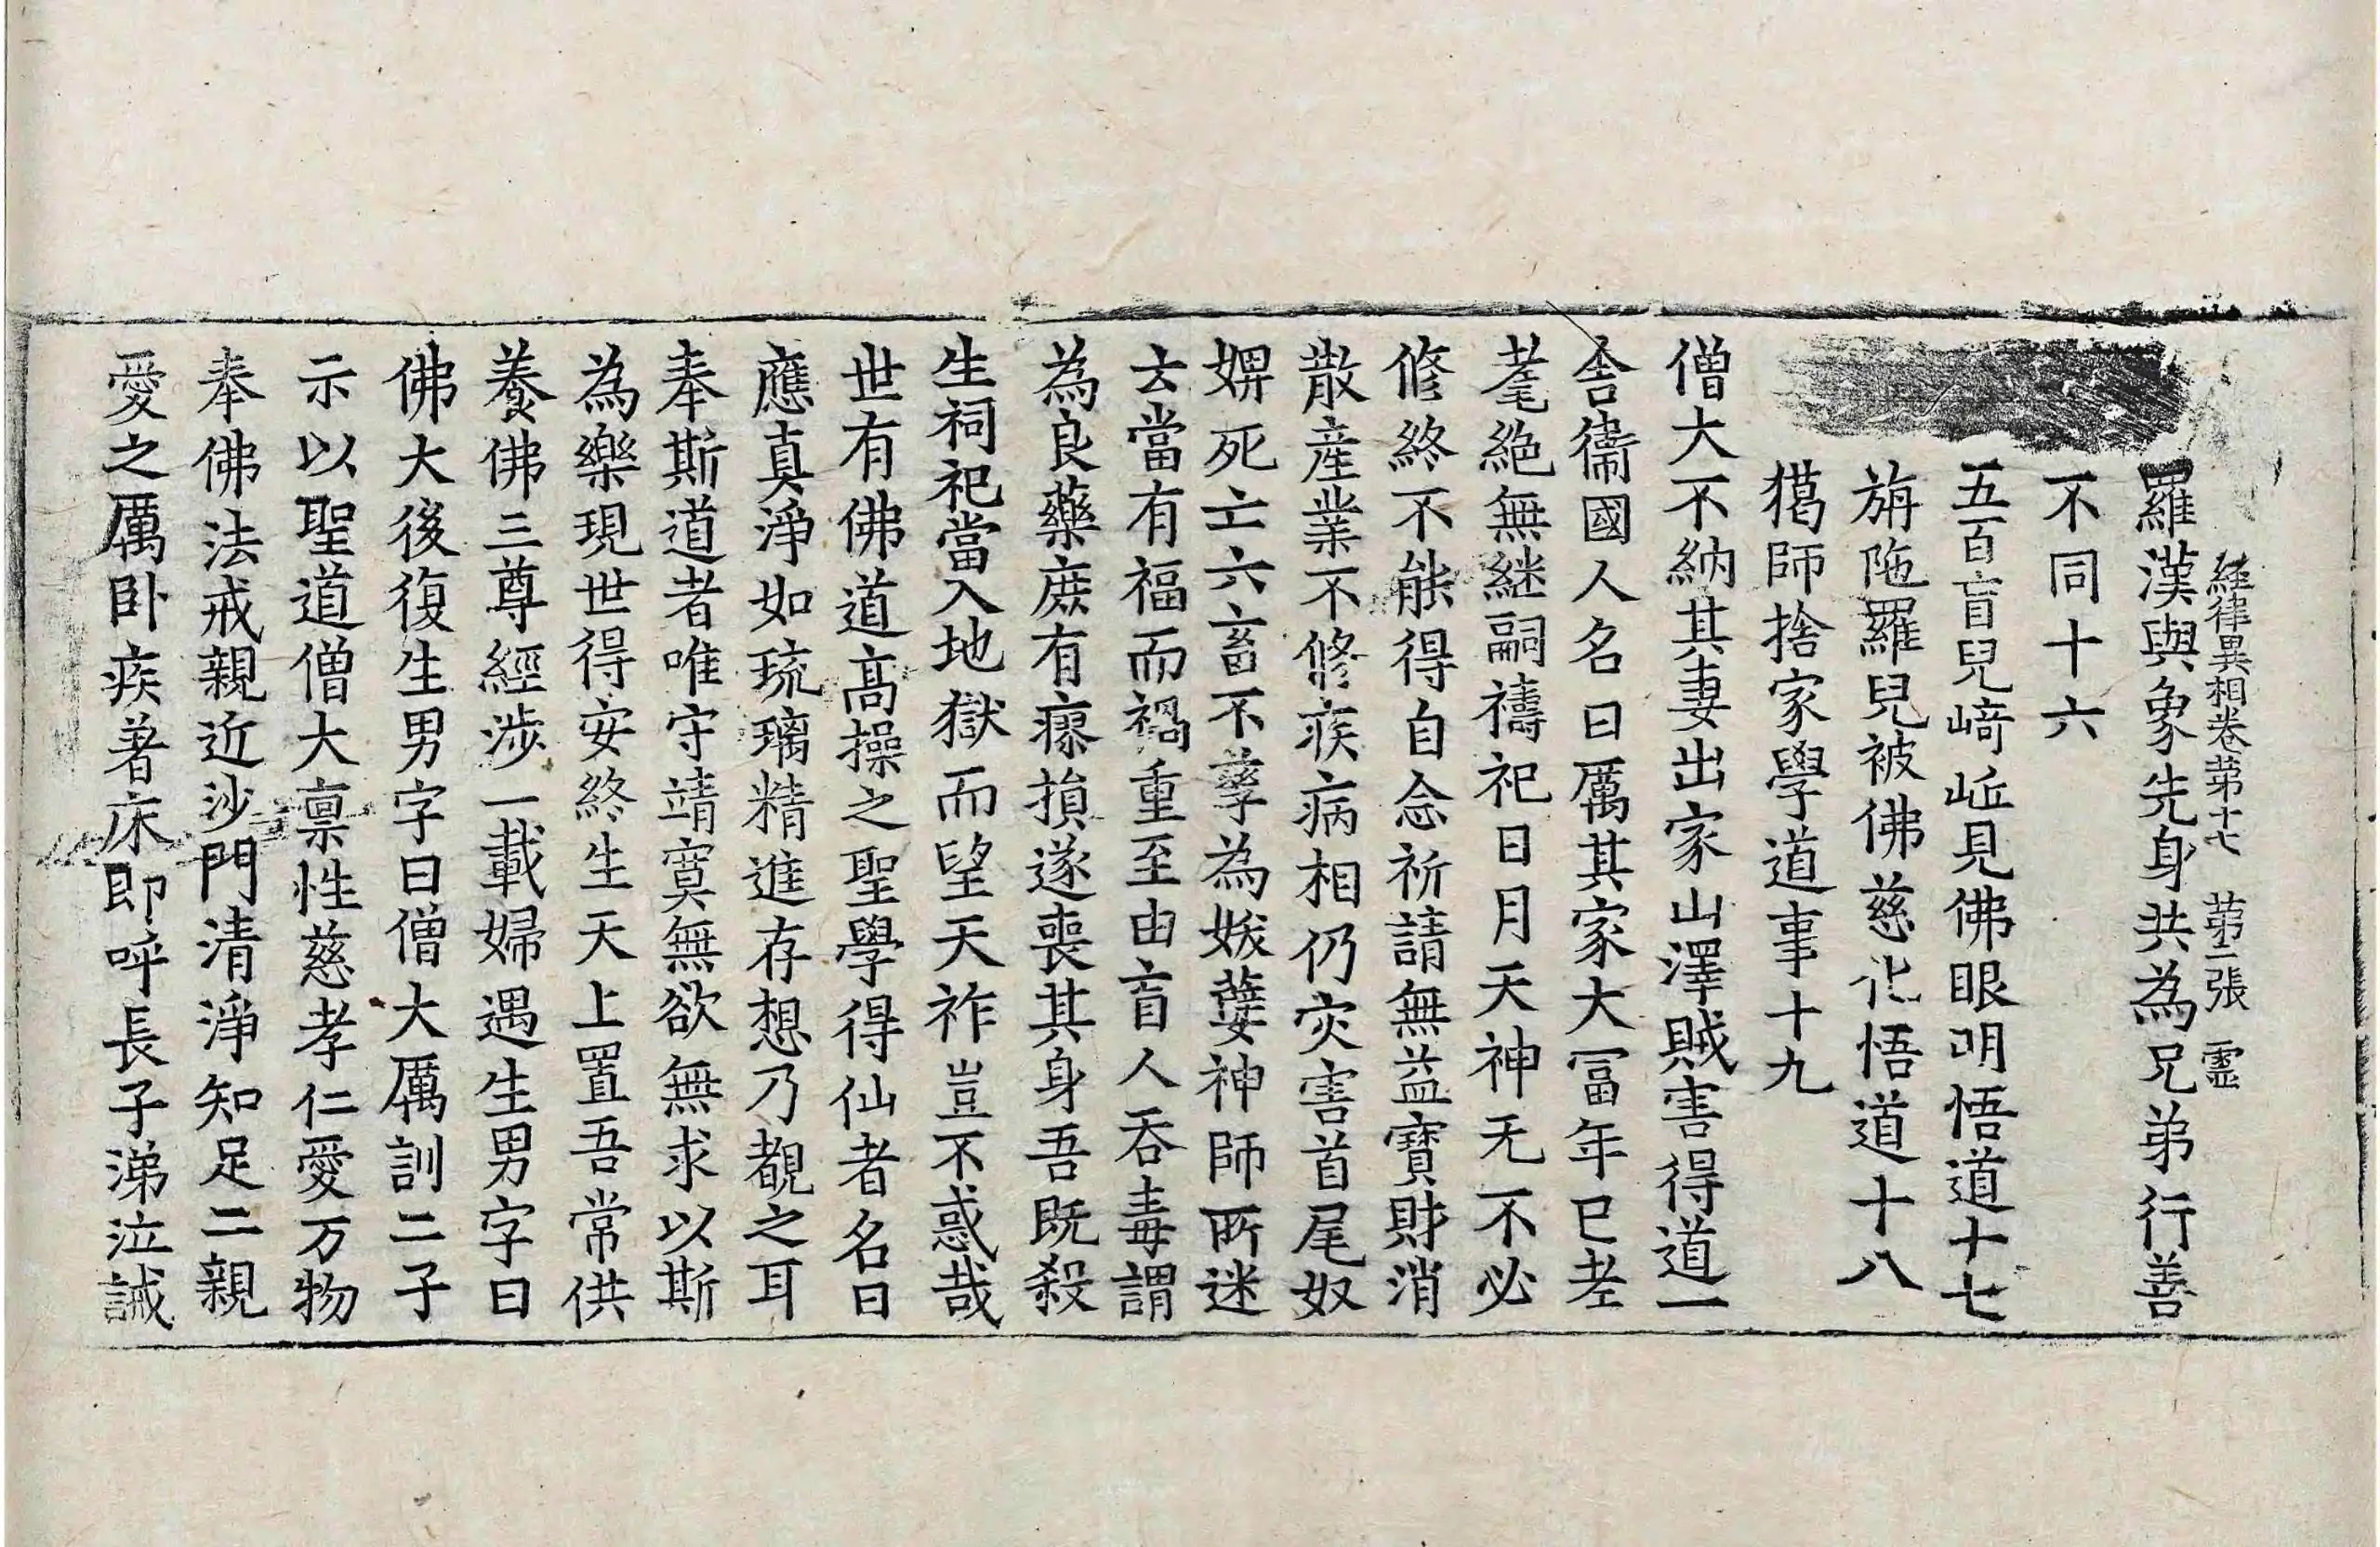 經律異相卷第十七 第二張 靈
羅漢與象先身共為兄弟行善
不同十六
五百盲兒﨑𡶴見佛眼明悟道十七
旃陁羅兒被佛慈化悟道十八
獦師捨家學道事十九
僧大不納其妻出家山澤賊害得道一
舎衛國人名曰厲其家大冨年已耂
耄絕無継嗣禱祀日月天神无不必
修終不能得自念祈請無益寶財消
散產業不修疾病相仍灾害首尾奴
婢死亡六畜不孳為妭㜸神師所迷
去當有福而禍重至由盲人吞毒謂
為良藥庶有瘝損遂喪其身吾既殺
生祠祀當入地獄而望天祚豈不惑哉
世有佛道高操之聖學得仙者名曰
應真淨如琉璃精進存想乃覩之耳
奉斯道者唯守靖寞無欲無求以斯
為樂現世得安終生天上置吾常供
養佛三尊經涉一載婦遇生男字曰
佛大後復生男字曰僧大厲訓二子
示以聖道僧大稟性慈孝仁愛万物
奉佛法戒親近沙門清淨知足二親
愛之厲卧疾著床即呼長子涕泣誡